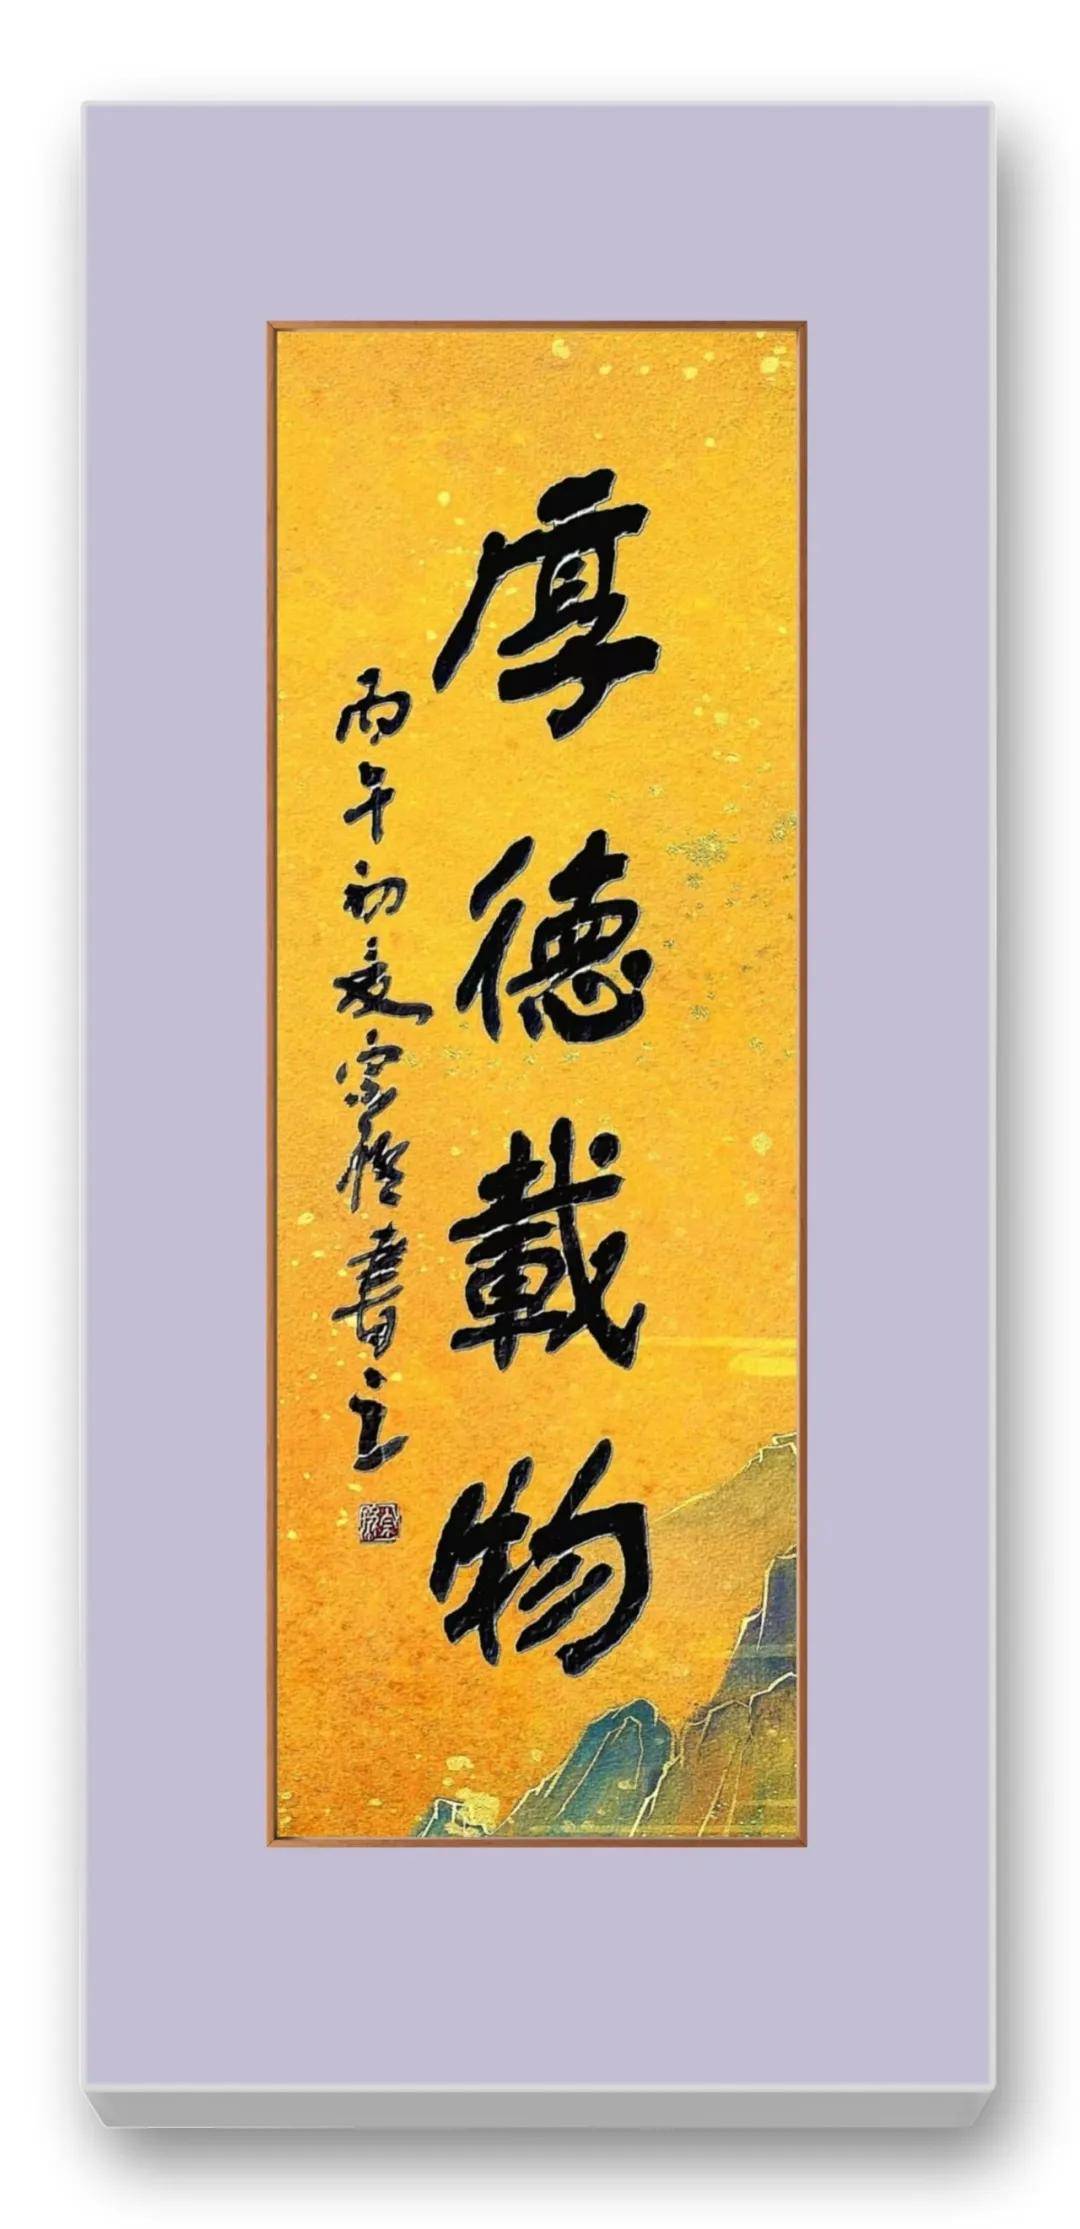 厚德載物
丙午初夏宗悟書之